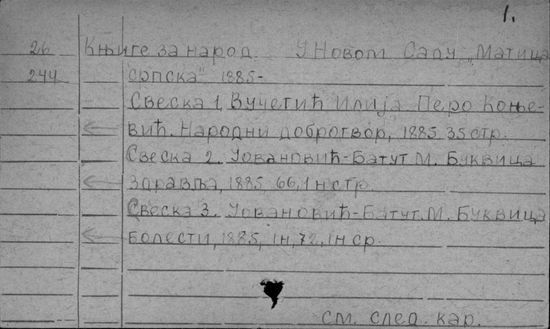 1.
26 Књиге за народ. У Новом Саду „Матица
244 српска" 1885-
Свеска 1, Вучетић Илија Перо Коње-
вић. Народни добротвор, 1885 35 стр.
Свеска 2. Јовановић-Батут М. Буквица
здравља, 1885 66, 1 н стр.
Свеска 3. Јовановић-Батут. М. Буквица
болести, 1885, 1н, 72, 1н ср.
см. след. кар.